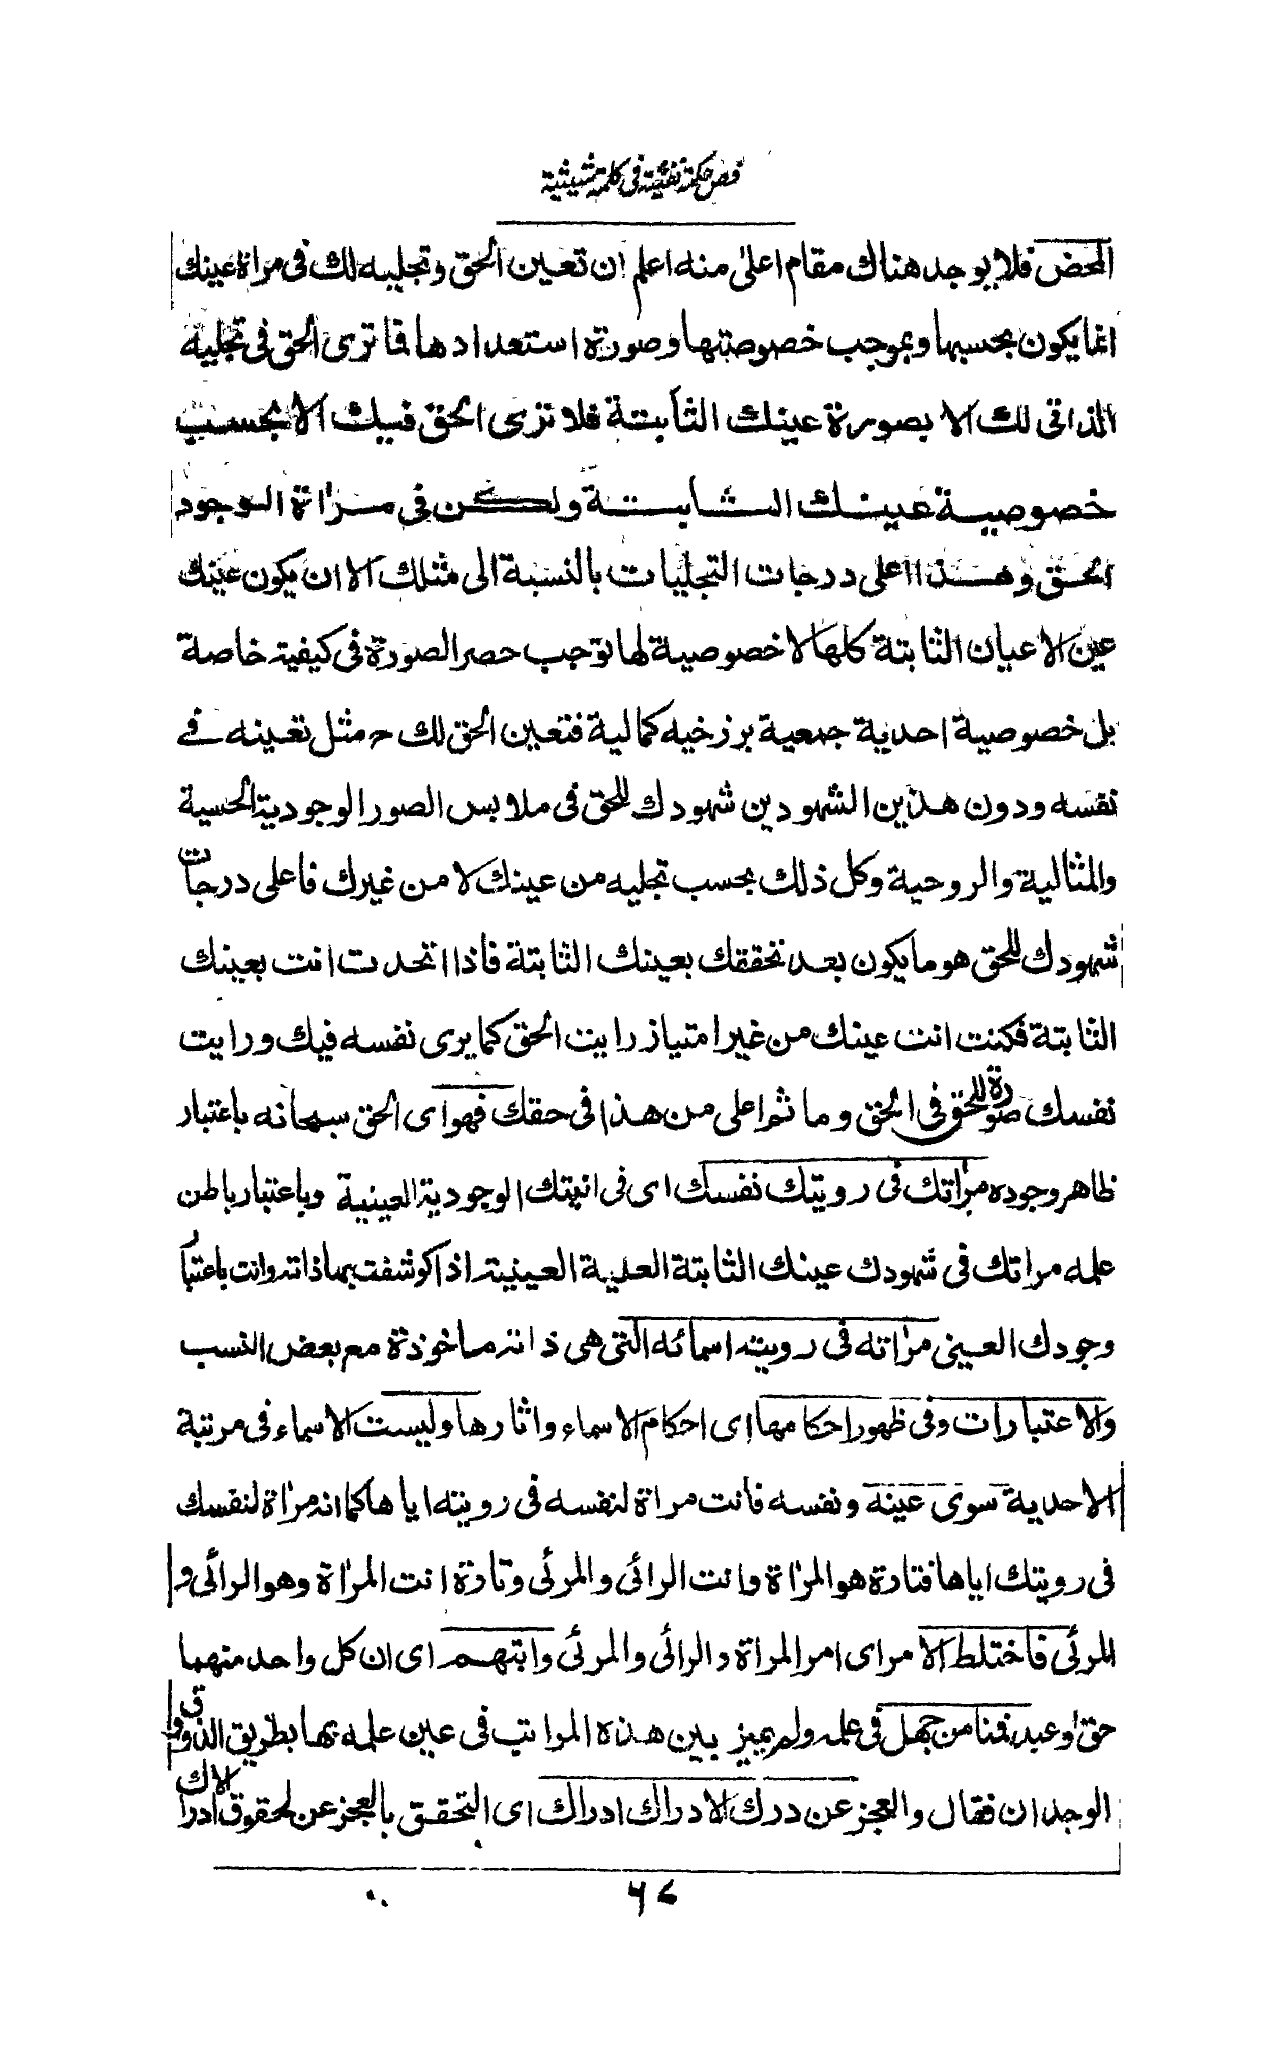 فص حكمة نفثية في كلمة شيثية
المحض فلا يوجد هناك مقام اعلى منه اعلم ان تعين الحق وتجليه لك فى مراة عينك
انما يكون بحسبها وبموجب خصوصيتها وصورة استعدادها فما ترى الحق فى تجليه
الذاتى لك الا بصورة عينك الثابتة فلا ترى الحق فيك الا بحسب
خصوصية عينك الثابتة ولكن فى مراة الوجود
الحق وهذا اعلى درجات التجليات بالنسبة الى مثلك الا ان يكون عينك
عين الاعيان الثابتة كلها لا خصوصية لها توجب حصر الصورة فى كيفية خاصة
بل خصوصية احدية جمعية برزخيه كمالية فتعين الحق لك ح مثل تعينه فے
نفسه ودون هذين الشهودين شهودك للحق فى ملابس الصور الوجودية الحسية
والمثالية والروحية وكل ذلك بحسب تجليه من عينك لا من غيرك فاعلى درجات
شهودك للحق هو ما يكون بعد تحققك بعينك الثابتة فاذا اتحدت انت بعينك
الثابتة فكنت انت عينك من غير امتياز رايت الحق كما يرى نفسه فيك ورايت
نفسك صورة للحق فى الحق وما ثم اعلى من هذا فى حقك فهو اى الحق سبحانه باعتبار
ظاهر وجوده مراتك فى رويتك نفسك اى فى انيتك الوجودية العينية وباعتبار باطن
علمه مراتك فى شهودك عينك الثابتة العلمية العينية اذا كوشفت بهما ذاته وانت باعتبا
وجودك العينى مراته فى رويته اسمائه التى هى ذاته ماخوذة مع بعض النسب
والاعتبارات وفى ظهور احكامها اى احكام الاسماء واثارها وليست الاسماء فى مرتبة
الاحدية سوى عينه ونفسه فانت مراة لنفسه فى رويته اياها كما انه مراة لنفسك
فى رويتك اياها فتارة هو المراة وانت الرائى والمرئى وتارة انت المراة وهو الرائى و
المرئى فاختلط الامر اى امر المراة والرائى والمرئى وابتهم اى ان كل واحد منهما
حق او عبد فمنا من جهل فى علمه ولم يميز بين هذه المراتب فى عين علمه بها بطريق الذوق و
الوجدان فقال والعجز عن درك الادراك ادراك اى التحقق بالعجز عن لحقوق ادراك الا
٦٧